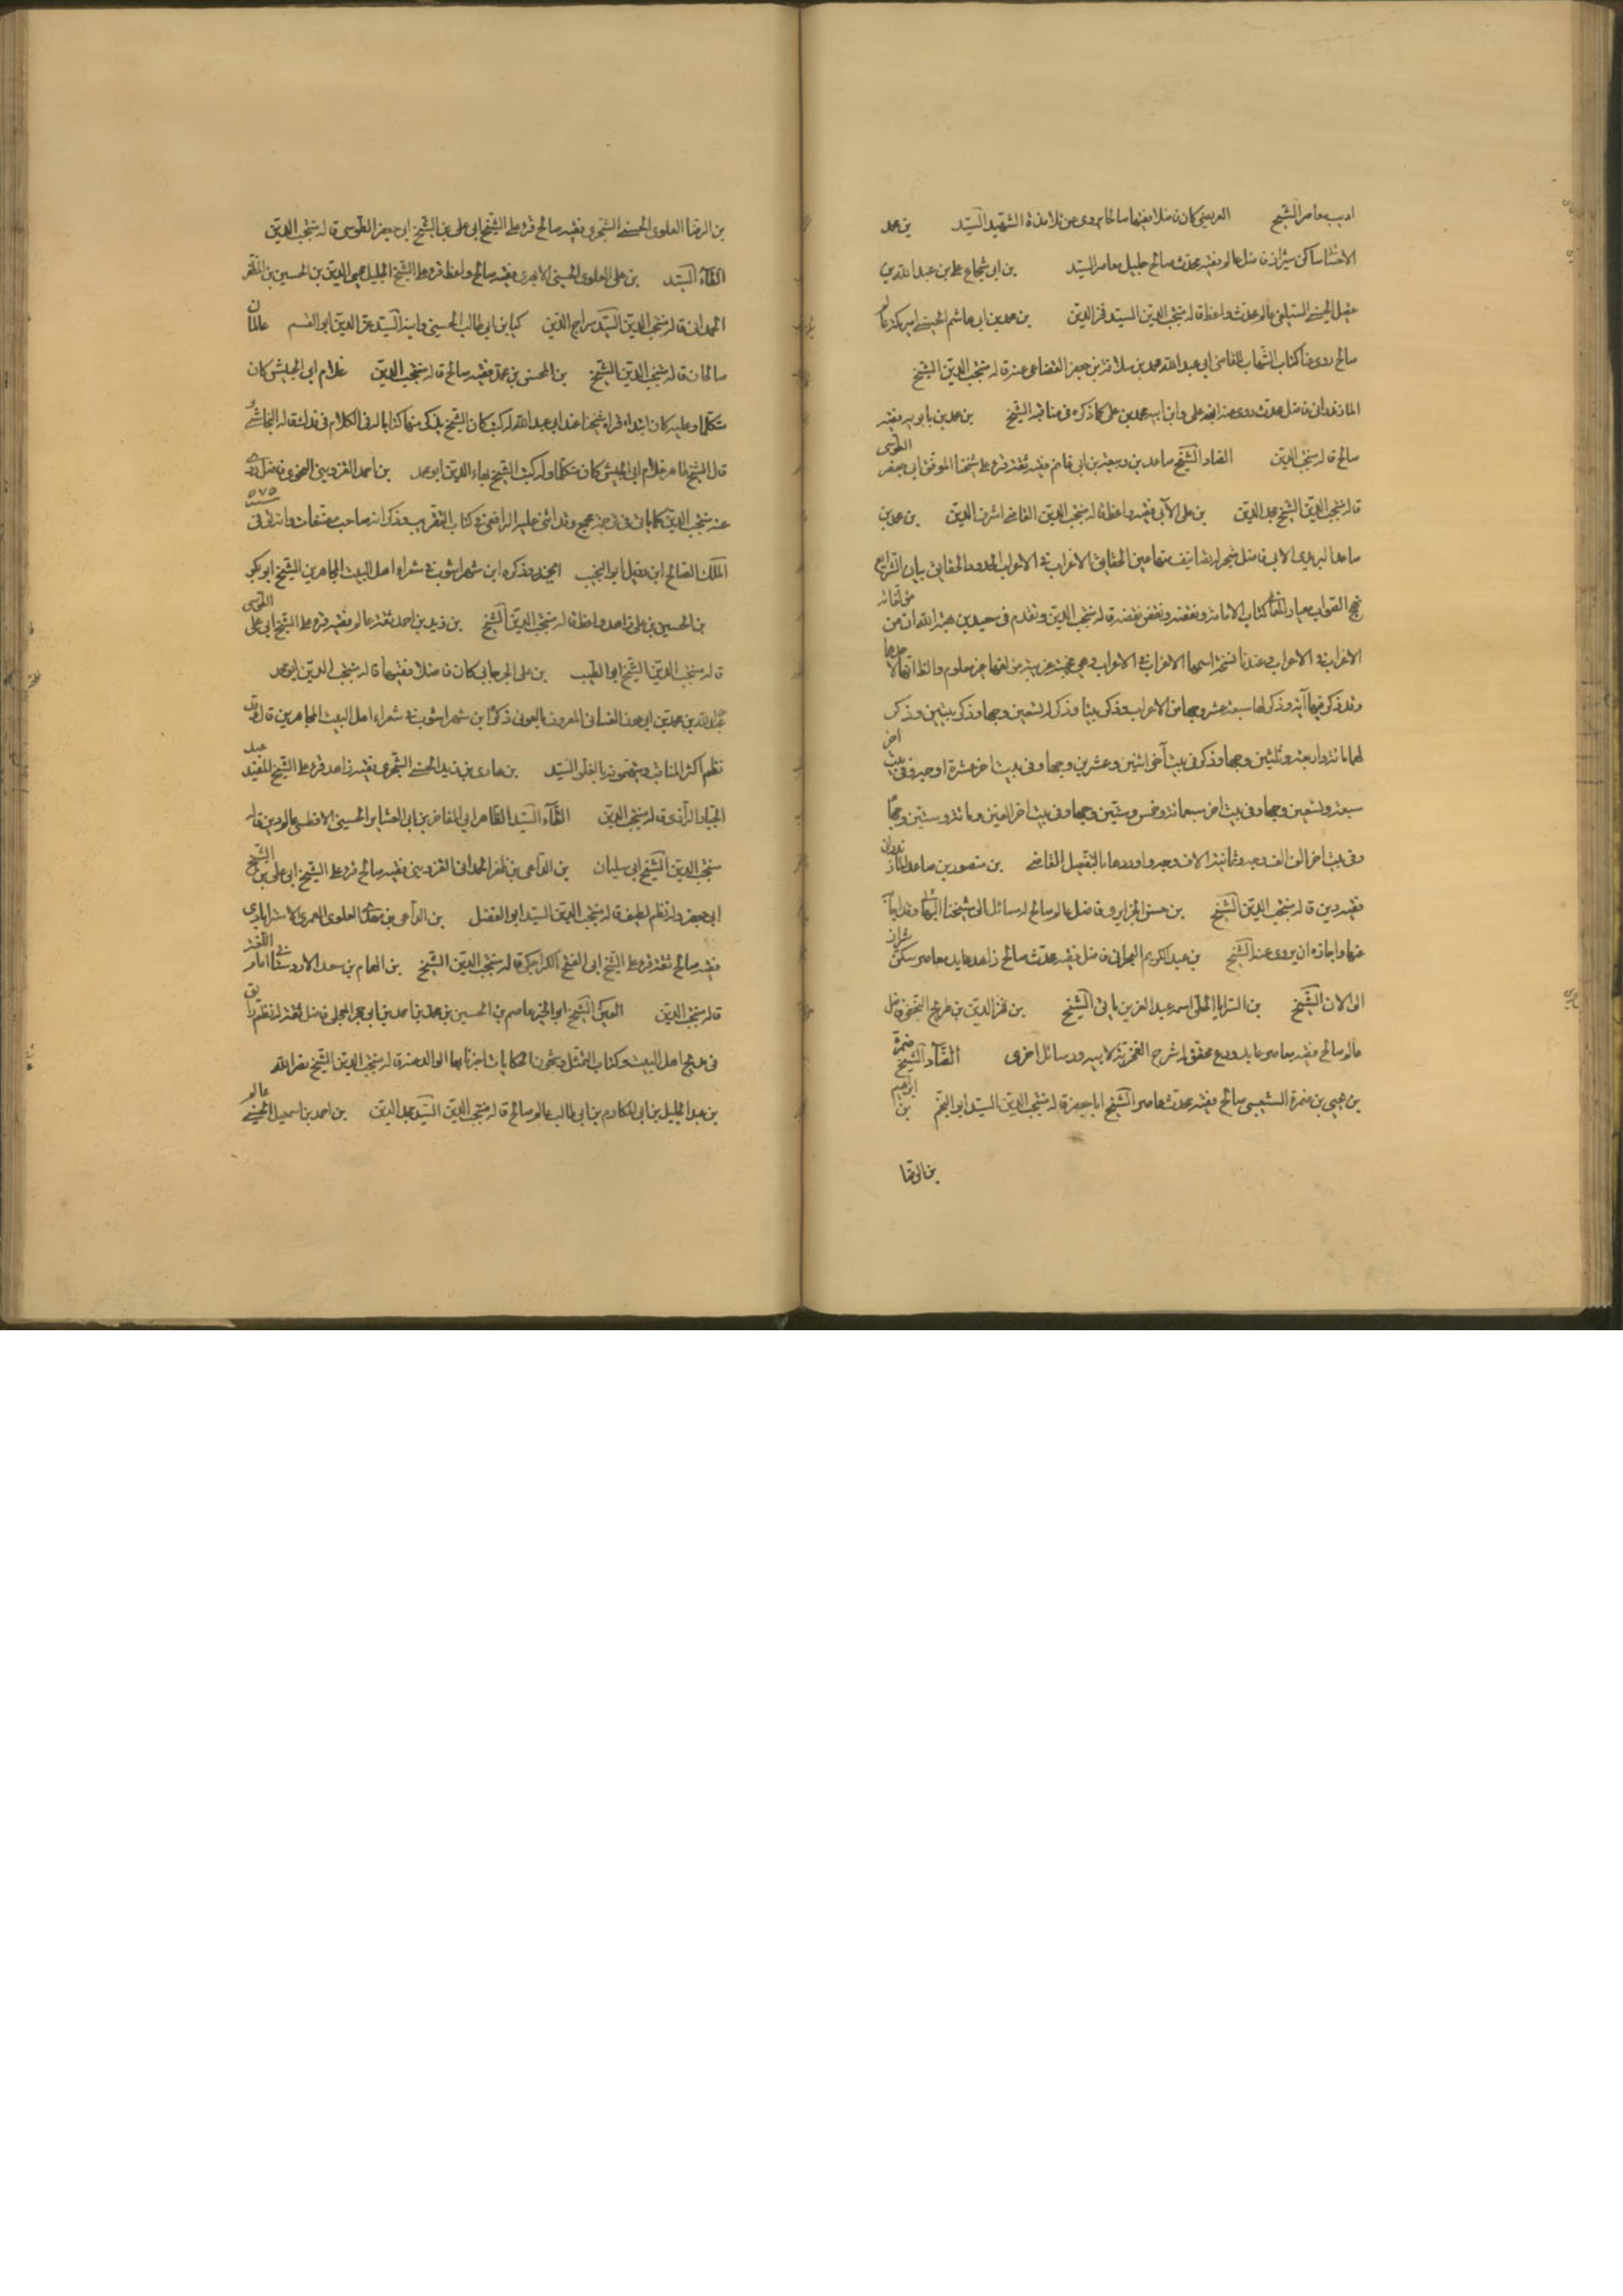 اديب معاصر الشيخ العريضى كان فاضلا فقيها صالحا يروى عن تلامذة الشهيد السيد بن محمد
الاحسائى ساكن شيراز فاضل عالم فقيه محدث صالح جليل معاصر السيد بن ابى شجاع على بن عبد الله بن
عقيل الحسنى السيلقى عالم محدث واعظ قاله منتجب الدين السيد فخر الدين بن محمد بن ابى هاشم الحسنى امير مكة عالم
صالح روى لنا كتاب الشهاب للقاضى ابى عبد الله محمد بن سلامة بن جعفر القضاعى عنه قاله منتجب الدين الشيخ
المازندرانى فاضل محدث روى عنه ابنه على وابن ابنه محمد بن على كما ذكره فى مناقبه الشيخ بن محمد بن بابويه فقيه
صالح قاله منتجب الدين الصاد الشيخ صاعد بن ربيعة بن ابى غانم فقيه ثقة قرء على شيخنا الموفق ابى جعفر الطوسى
قاله منتجب الدين الشيخ مجد الدين بن على الآبى فقيه واعظ قاله منتجب الدين القاضى اشرف الدين بن محمد بن
صاعد البريدى الآبى فاضل متبحر له تصانيف منها عين الحقايق الاغراب فى الاعراب الحدود والحقايق بيان الشرايع
نهج الصواب معيار المعانى كتاب الامامة ونقضه ونقض نقضه قاله منتجب الدين وتقدم فى سعيد بن هبة الله ان من مؤلفاته
الاغراب فى الاعراب وعندنا نسخة اسمها الاغراب فى الاعراب وهى عجيبة غريبة مؤلفها غير معلوم والظاهر انها لاحدهما
وقد ذكر فيها آية وذكر لها سبعة عشر وجها من الاعراب وذكر بيتا وذكر له تسعين وجها وذكر بيتين وذكر
لهما مائة واربعة وثلثين وجها وذكر فى بيت آخر اثنين وعشرين وجها وفى بيت اخر عشرة اوجه وفى بيت اخر
سبعة وتسعين وجها وفى بيت اخر سبعمائة وخمس وستين وجها وفى بيت اخر الفين ومائة وستين وجها
وفى بيت اخر الف الف وجه وثمانية الاف وجه واوردها بالتفصيل القاضى بن منصور بن صاعد المازندرانى
فقيه دين قاله منتجب الدين الشيخ بن حسن الجزايرى فاضل عالم صالح له مسائل الى شيخنا البهائى وقد اجابه
عنها واجازه ان يروى عنه الشيخ بن عبد الكريم البحرانى فاضل فقيه محدث صالح زاهد عابد معاصر سكن شيراز
الى الان الشيخ بن السرايا الحلى اسمه عبد العزيز ياتى الشيخ بن فخر الدين بن طريح النجفى فاضل
عالم صالح فقيه معاصر عابد ورع محقق له شرح الفخرية لابيه ورسائل اخرى الضاد الشيخ ضمرة
بن يحيى بن ضمرة الشعيبى صالح فقيه محدث معاصر الشيخ ابا جعفر قاله منتجب الدين السيد ابو النجم بن ابراهيم
بن الرضا
بن الرضا العلوى الحسنى الشجرى فقيه صالح قرء على الشيخ ابى على بن الشيخ ابى جعفر الطوسى قاله منتجب الدين
الطاء السيد بن على العلوى الحسينى الابهرى فقيه صالح واعظ قرء على الشيخ الجليل محيى الدين بن الحسين بن المظفر
الحمدانى قاله منتجب الدين السيد سراج الدين كيا بن ابى طالب الحسينى وابنه السيد عز الدين ابو القسم عالمان
صالحان قاله منتجب الدين الشيخ بن المحسن بن محمد فقيه صالح قاله منتجب الدين غلام ابى الجيش كان
متكلما وعليه كان ابتداء قراءة شيخنا عند ابى عبد الله له كتب كان الشيخ يذكر منها كتابا له فى الكلام فى فدك قاله النجاشى و
قال الشيخ طاهر غلام ابى الجيش كان متكلما وله كتب الشيخ بهاء الدين ابو محمد بن احمد القزوينى النحوى فاضل روى
عنه منتجب الدين كما ياتى فى ترجمة عجمى وقد اثنى عليه الرافعى فى كتاب التقريب وذكر انه صاحب مصنفات وانه توفى فى ٥٧٥
الملك الصالح ابن رفيل ابو النجيب الجزرى ذكره ابن شهراشوب فى شعراء اهل البيت المجاهرين الشيخ ابو بكر
بن الحسين بن على زاهد واعظ قاله منتجب الدين الشيخ بن زيد بن احمد ثقة عالم فقيه قرء على الشيخ ابى على الطوسى
قاله منتجب الدين الشيخ ابو الطيب بن على الجرجانى كان فاضلا فقيها قاله منتجب الدين ابو محمد
عبد الله بن محمد بن ابى عون الغسانى المعروف بالعونى ذكره ابن شهراشوب فى شعراء اهل البيت المجاهرين قال وقد
نظم اكثر المناقب ويتهمونه بالغلو السيد بن هادى بن زيد الحسنى الشجرى فقيه زاهد قرء على الشيخ المفيد عبد
الجبار الرازى قاله منتجب الدين الظاء السيد الظاهر ابى المفاخر بن ابى العشاير الحسينى الافطسى عالم دين قاله
منتجب الدين الشيخ ابى سليمان بن الداعى بن ظفر الحمدانى القزوينى فقيه صالح قرء على الشيخ ابى على بن الشيخ
ابى جعفر وله نظم لطيف قاله منتجب الدين السيد ابو الفضل بن الداعى بن مهدى العلوى العمرى الاسترابادى
فقيه صالح ثقة قرء على الشيخ ابى الفتح الكراجكى قاله منتجب الدين الشيخ بن الهمام بن سعد الاردستانى امام فى اللغة
قاله منتجب الدين العين الشيخ ابو الخير عاصم بن الحسين بن محمد بن احمد بن ابى حجر العجلى فاضل ثقة له نظم رايق
فى مديح اهل البيت وكتاب التمثل وشجون الحكايات اخبرنا بها الوالد عنه قاله منتجب الدين الشيخ نصر الله
بن عبد الجليل بن ابى المكارم بن ابى طالب عالم صالح قاله منتجب الدين السيد مجد الدين بن احمد بن اسمعيل الحسينى عالم